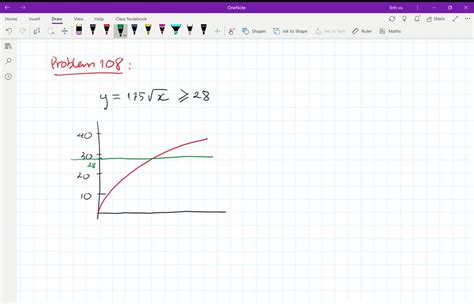 OneNote
linh vu
File Home Insert Draw View Help Class Notebook
Shapes Ink to Shape Ink to Text Ink Replay Maths
Problem 108:
y = 1.75√x ⩾ 28
40
30
28
20
10